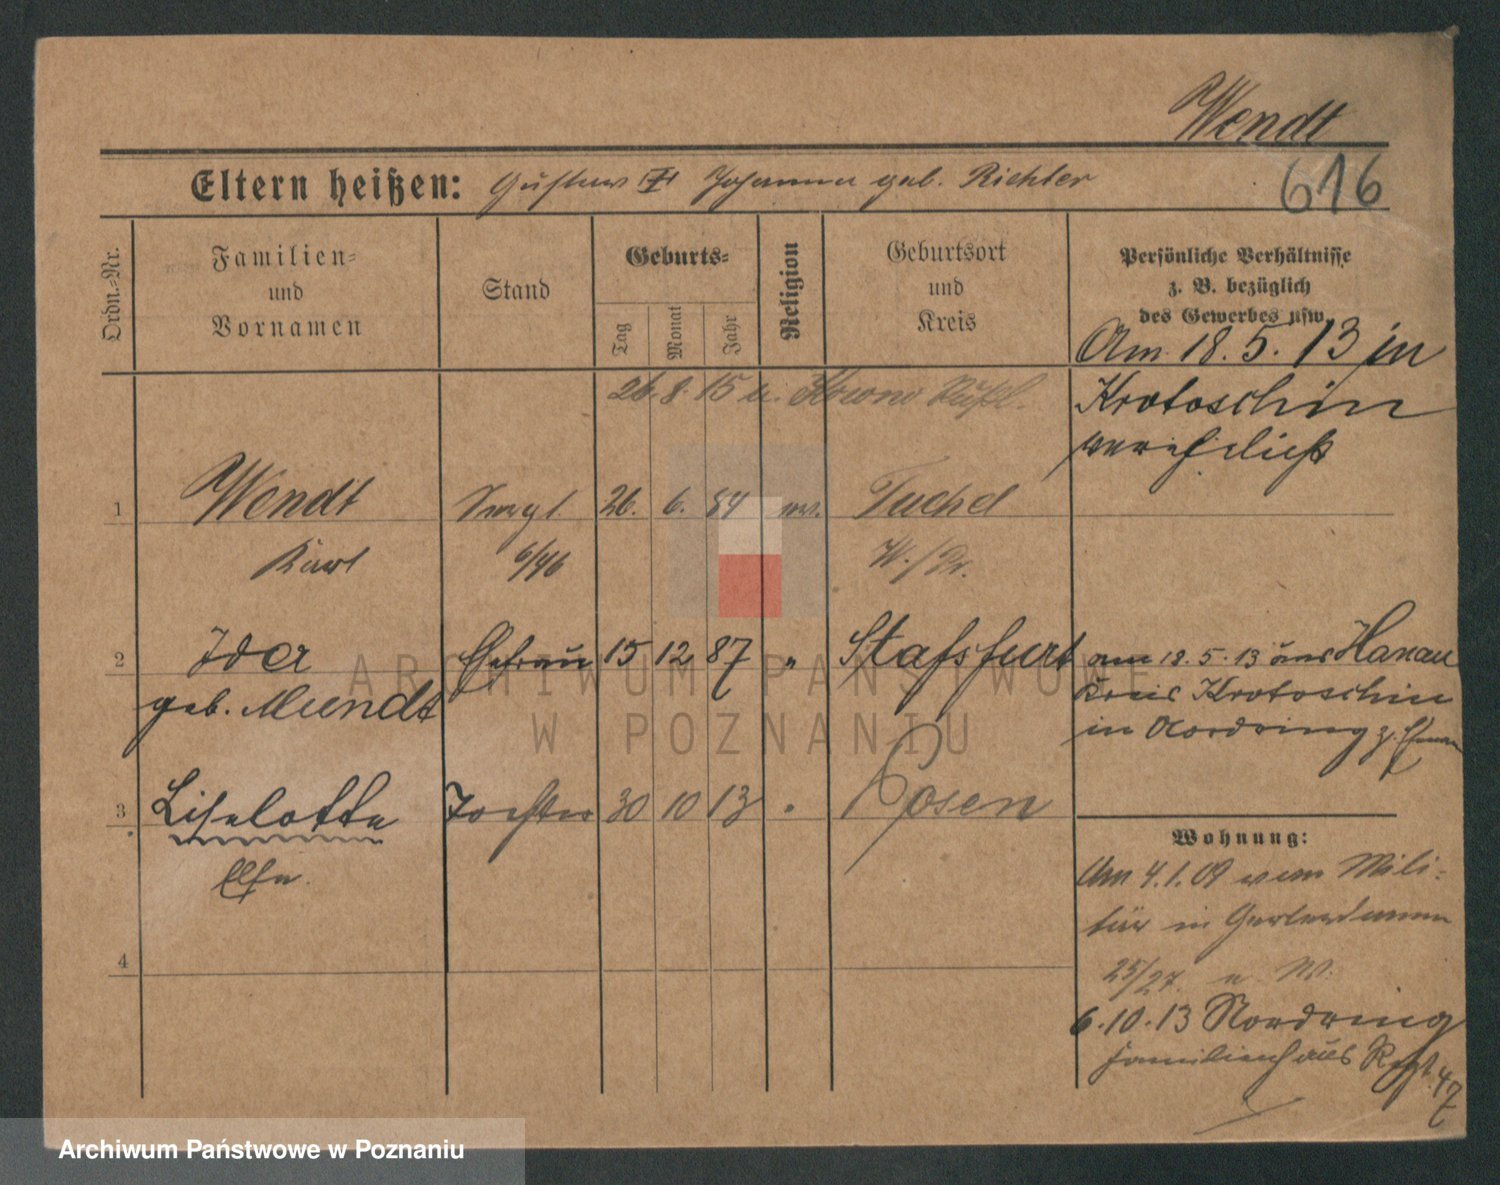 Wendt
616
Eltern heißen: Gustav Johanna geb. Richter
Ordn.-Nr.
Familien-
und
Vornamen
Stand
Geburts-
Tag
Monat
Jahr
Religion
Geburtsort
und
Kreis
Persönliche Verhältnisse
z. B. bezüglich
des Gewerbes usw.
Am 18.5.13 in
Krotoschin
verehelicht
26.8.15 u.
1 Wendt 26. 6. 84 ev. Tuchel
Karl 6/46 W./Pr.
2 Ida Ehefrau 15 12 87 " Stafsfurt
geb. Mundt
am 18.5.13 aus Hanau
Kreis Krotoschin
in Nordring
3 Liselotte Tochter 30 10 13 " Posen
Else
4
Wohnung:
Am 4.1.09 vom Mili-
tär in
25/27.
6.10.13 Nordring
Familienhaus Regt. 47
ARCHIWUM PAŃSTWOWE
W POZNANIU
Archiwum Państwowe w Poznaniu